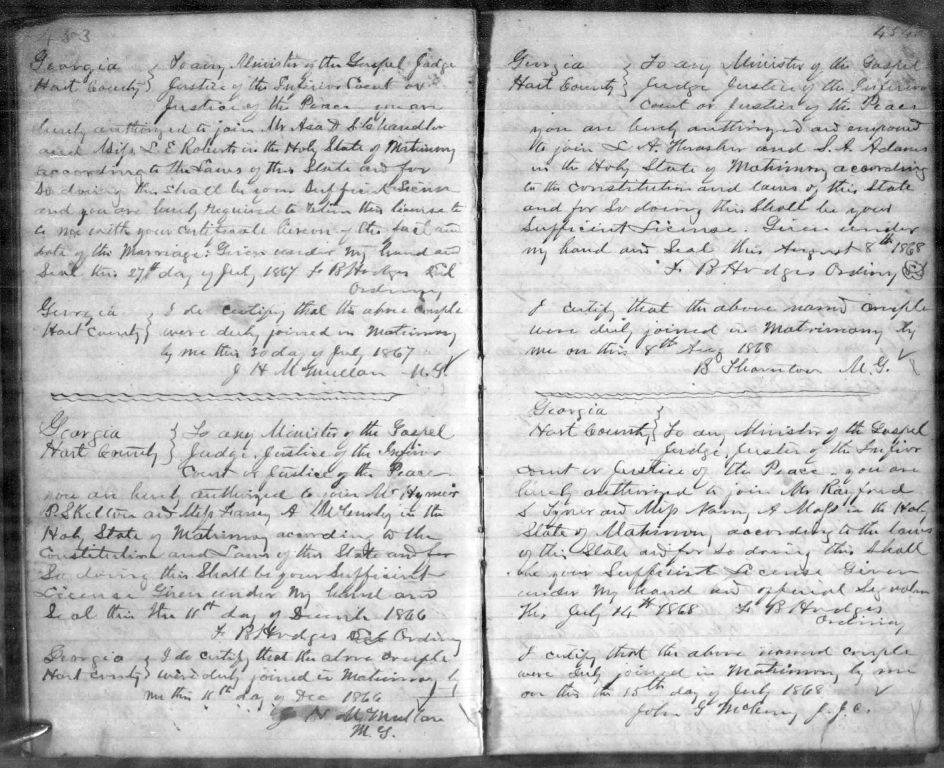 453
Georgia } To any Minister of the Gospel Judge
Hart County } Justice of the Inferior Court or
Justice of the Peace you are
hereby authorized to join Mr Asa D S Chandler
and Miss L. E Roberts in the Holy State of Matimony
according to the Laws of this State and for
So doing this shall be your Sufficient License
and you are hereby required to return this license to
me with your certificate hereon of the fact and
date of the Marriage. Given under My hand and
Seal this 27th day of July 1867 F B Hodges Seal
Ordinary
Georgia } I do certify that the above couple
Hart County } were duly joined in Matimony
by me this 30 day of July 1867
J H McMullan M.G.
Georgia } To any Minister of the Gospel
Hart County } Judge, Justice of the Inferior
Court or Justice of the Peace
you are hereby authorized to join Mr
Skelton and Miss A in the
Holy State of Matrimony according to the
Constitution and Laws of this State and for
So doing this Shall be your Sufficient
License Given under My hand and
Seal this the 11th day of December 1866
F. B Hodges Ordinary
Georgia } I do certify that the above couple
Hart County } were duly joined in Matimony by
me this 11th day of Dec 1866
J H McMullan
M. G.
454
Georgia } To any Minister of the Gospel
Hart County } Judge Justice of the Inferior
Court or Justice of the Peace
you are hereby authorized and empowered
to join L. A. Thrasher and S. A. Adams
in the Holy State of Matimony according
to the constitution and laws of this State
and for So doing this Shall be your
Sufficient License. Given under
my hand and Seal this August 8th 1868
F. B Hodges Ordinary
I certify that the above named couple
were duly joined in Matrimony by
me on this 8th Aug 1868
B Thornton M. G.
Georgia }
Hart County } To any Minister of the Gospel
Judge, Justice of the Inferior
Court or Justice of the Peace. you are
hereby authorized to join Mr Rayford
S Tyner and Miss Nancy A Moss in the Holy
State of Matimony according to the laws
of this State and for so doing this Shall
be your Sufficient License Given
under My hand and official Signature
this July 14th 1868 F. B Hodges
Ordinary
I certify that the above named couple
were duly joined in Matimony by me
on this the 15th day of July 1868
John G McCurry J. J. C.